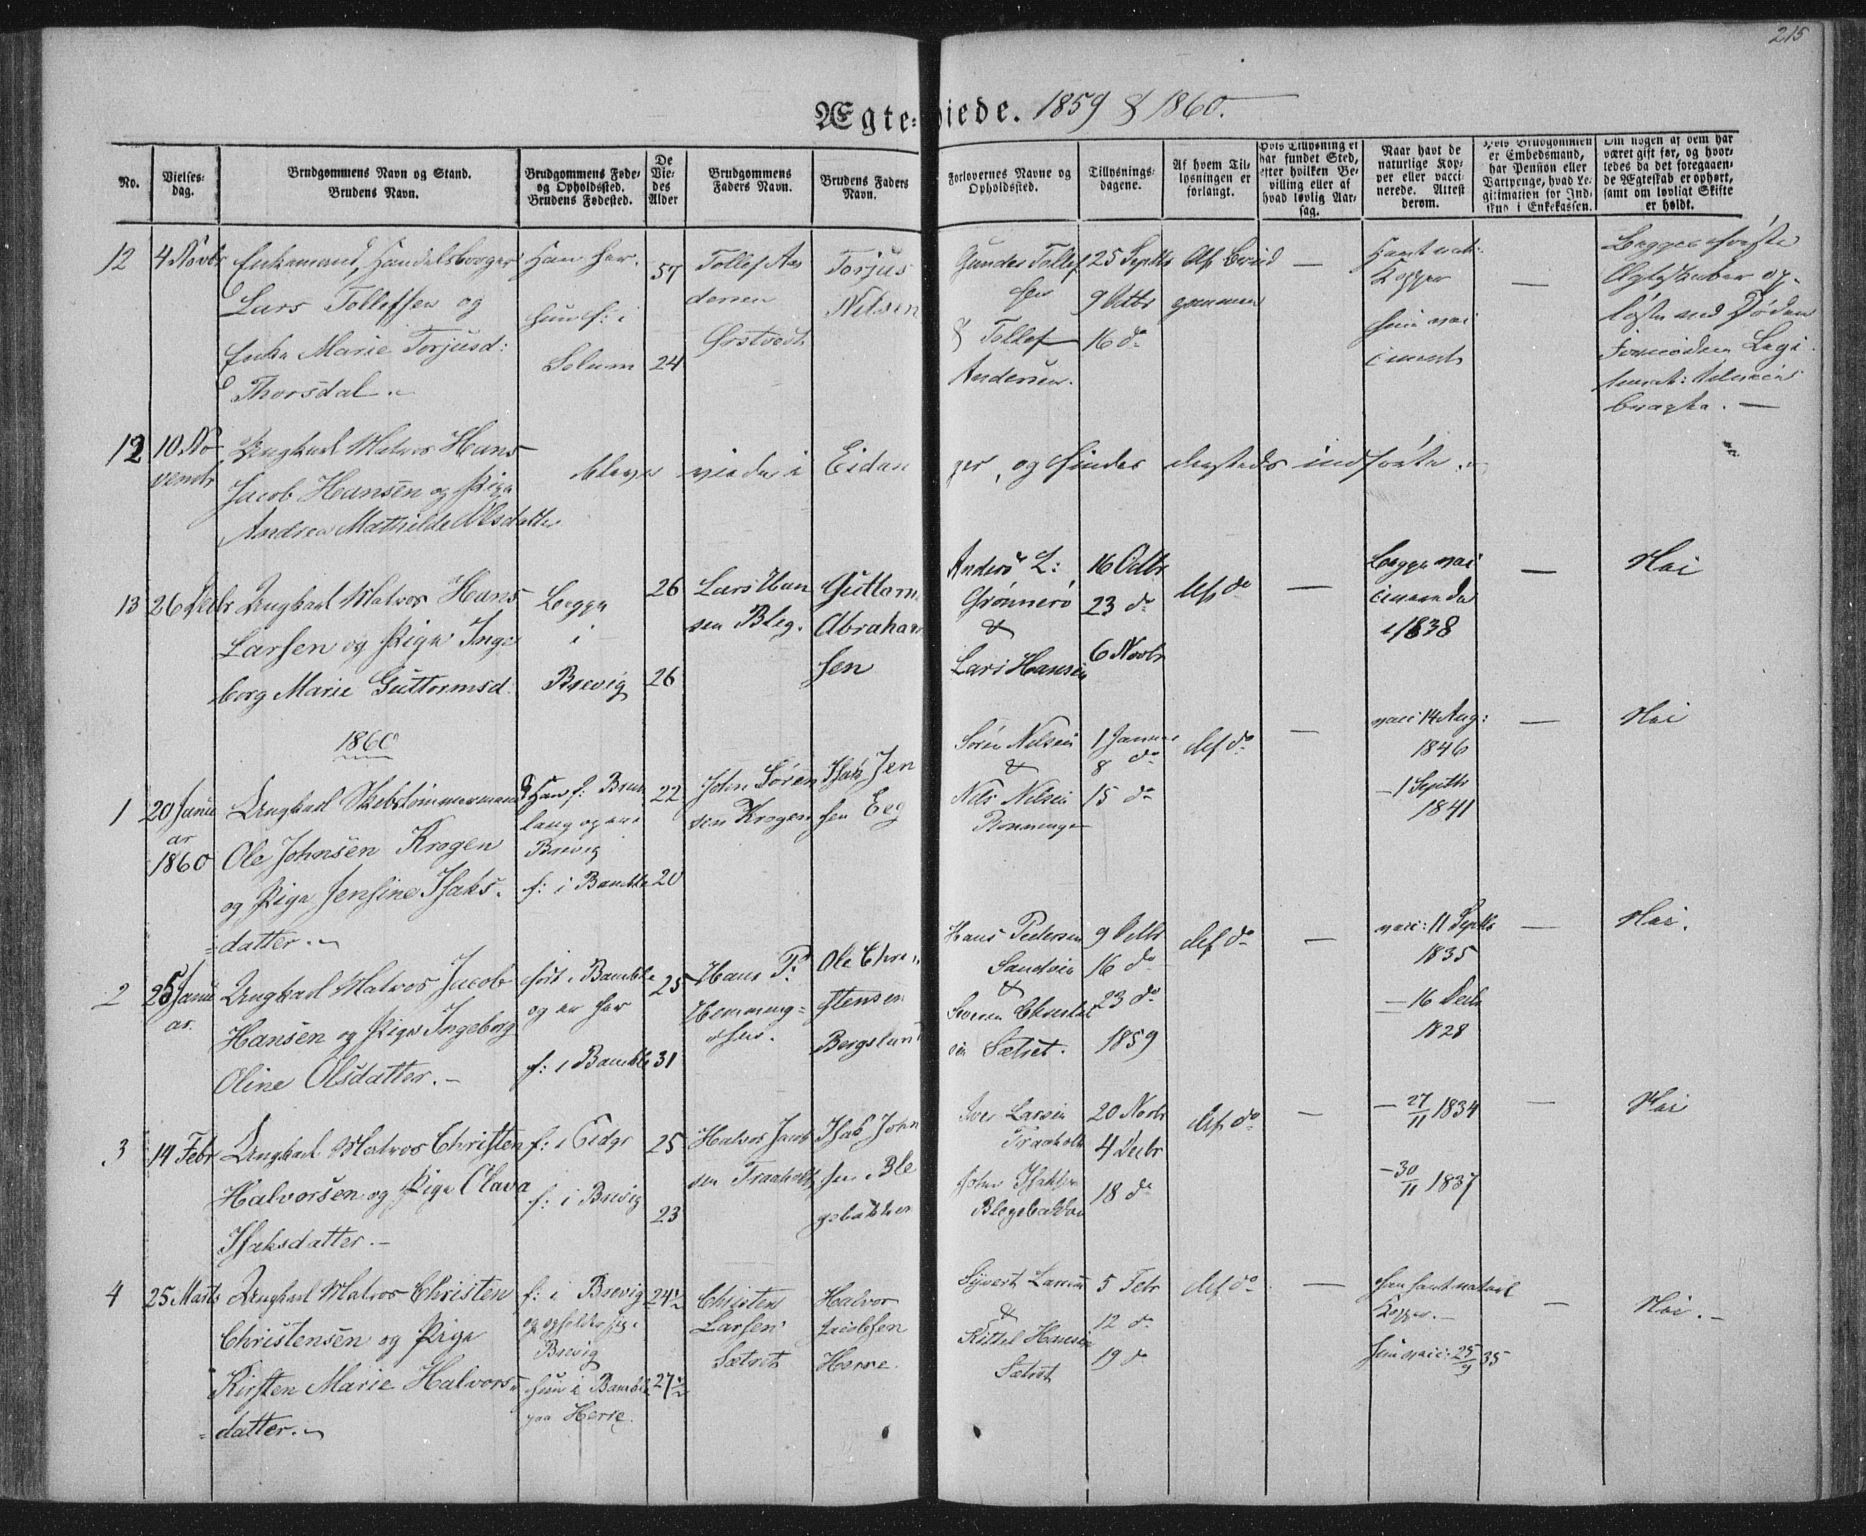 215
Ægte-viede. 1859 & 1860.
No.
Vielses-dag.
Brudgommens Navn og Stand.
Brudens Navn.
Brudgommens Føde-
og Opholdssted.
Brudens Fødested.
De
Vie-
des
Alder
Brudgommens
Faders Navn.
Brudens Faders
Navn.
Forlovernes Navne og
Opholdssted.
Tillysnings-
dagene.
Af hvem Til-
lysningen er
forlangt.
Hvis Tillysning ei
har fundet Sted,
efter hvilken Be-
villing eller af
hvad lovlig Aar-
sag.
Naar havt de
naturlige Kop-
per eller vacci-
nerede. Attest
derom.
Hvis Brudgommen
er Embedsmand,
har Pension eller
Vartpenge, hvad Le-
gitimation for Ind-
skud i Enkekassen.
Om nogen af dem har
været gift før, og hvor-
ledes da det foregaaen-
de Ægteskab er ophørt,
samt om lovligt Skifte
er holdt.
12 4 Novbr Enkemand, Handelsborger
Lars Tollefsen og
Enke Marie Torjusd:
Thorsdal.
Han her.
hun f: i
Solum
57
24
Tollef An
dersen
Ørstvedt
Torjus
Nilsen
Gunder Tollef
sen
& Tollef
Andersen.
25 Septbr
9 Octbr
16 do
Af Brud
gommen
—
Kopper
hun vac
cineret
—
Begges første
Ægteskaber op-
løste ved Døden
Legi
bragte. —
12 10 No
vembr
Ungkarl Matros Hans
Jacob Hansen og Pige
Andrea Mathilde Olsdatter
bleve viede i Eidan
ger, og findes dersteds indførte.
13 26 Decbr Ungkarl Matros Hans
Larsen og Pige Inge
borg Marie Guttormsd.
Begge
i
Brevig
26
26
Lars Han
sen Bleg.
Guttorm
Abraham
sen
Anders L:
Grønnerø
&
Lars Hansen
16 Octbr
23 do
6 Novbr
Af do
—
Begge vac
cinerede
i 1838
—
Nei
1860
1 20 Janu
ar
1860
Ungkarl Skibstømmermand
Ole Johnsen Krogen
og Pige Jensine Isaks-
datter.
Han f: i
Brevig
f: i Bamble
22
20
John Søren
sen Krogen
Isak Jen
sen Eeg
Søren Nilsen
&
Nils Nilsen
1 Januar
8 do
15 do
Af do
—
vacc: 14 Aug:
1846
— 1 Septbr
1841
—
Nei
2 25 Janu
ar.
Ungkarl Matros Jacob
Hansen og Pige Ingeborg
Oline Olsdatter. —
født i Bamble
og er her
f: i Bamble
25
31
Hans P:
Hemming-
sen.
Ole Chri
stensen
Bergsland
Hans Pedersen
Sandvig
&
Sætret.
9 Octbr
16 do
23 do
1859
Af do
—
vacc: 11 Septbr
1835
— 16 Decbr
1828
—
Nei.
3 14 Febr Ungkarl Matros Christen
Halvorsen og Pige Olava
Isaksdatter. —
f: i Eidgr
f: i Brevig
25
23
Halvor Jacob
sen Traaholt
Isak John
sen Ble
gebakken
Iver Larsen
Traaholt
John Isaksen
Blegebakken
20 Novbr
4 Decbr
18 do
Af do
—
— 27/11 1834
— 30/11 1837
—
Nei
4 25 Marts Ungkarl Matros Christen
Christensen og Pige
Kirsten Marie Halvors-
datter.
f: i Brevig
og opholder sig i
Brevig
hun i Bamble
paa Herre.
24½
27½
Christen
Larsen
Sætret
Halvor
Jacobsen
Herre.
Syvert Larsen
&
Kittel Hansen
Sætret
5 Febr
12 do
19 do
Af do
—
han havt naturl
Kopper. —
hun vacc: 25/9 35
—
Nei. —